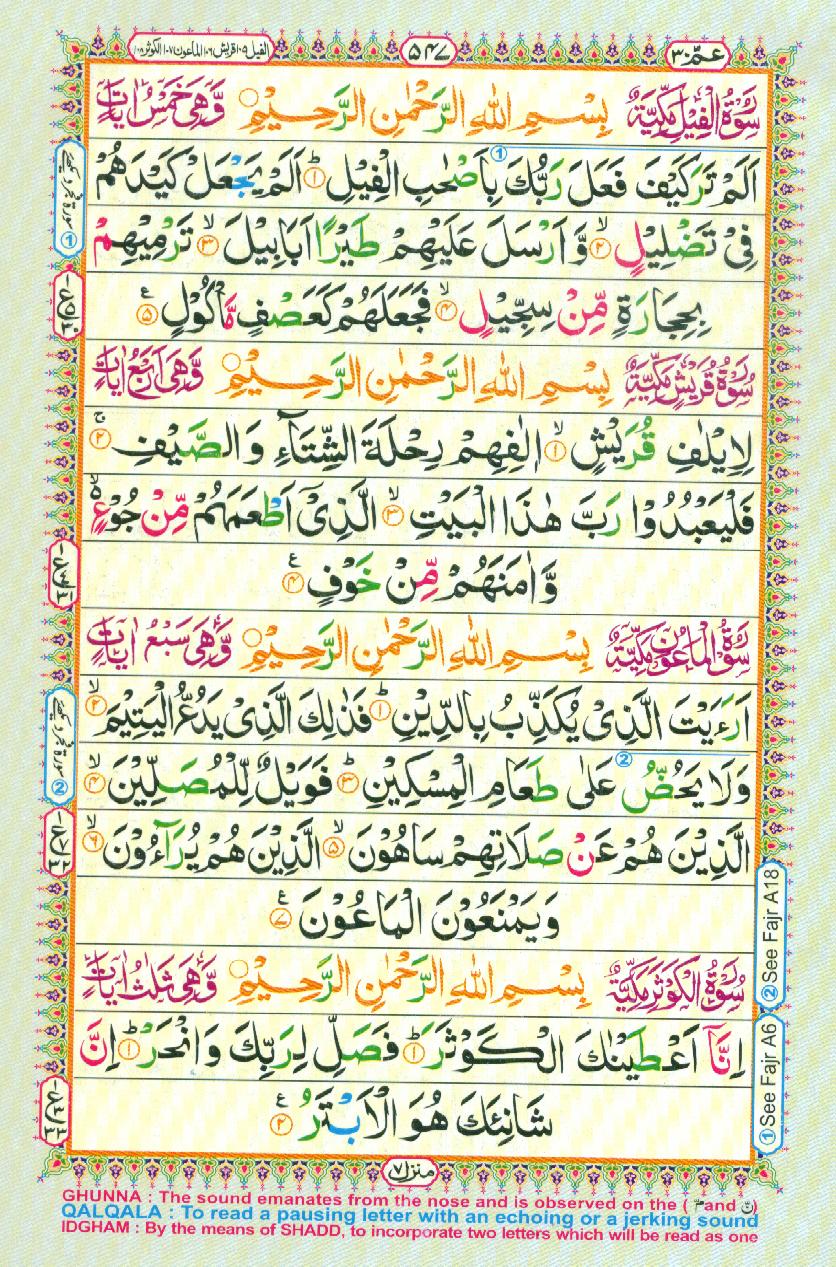 عمّ ٣٠
٥٤٧
الفيل ١٠٥ قریش ١٠٦ الماعون ١٠٧ الکوثر ١٠٨
سُوْرَةُ الْفِيْلِ مَكِّيَّةٌ بِسْمِ اللهِ الرَّحْمٰنِ الرَّحِيْمِ وَّهِيَ خَمْسُ اٰيَاتٍ
اَلَمْ تَرَ كَيْفَ فَعَلَ رَبُّكَ بِاَصْحٰبِ الْفِيْلِ ؕ ١ اَلَمْ يَجْعَلْ كَيْدَهُمْ
فِيْ تَضْلِيْلٍ ۙ ٢ وَّاَرْسَلَ عَلَيْهِمْ طَيْرًا اَبَابِيْلَ ۙ ٣ تَرْمِيْهِمْ
بِحِجَارَةٍ مِّنْ سِجِّيْلٍ ۙ ٤ فَجَعَلَهُمْ كَعَصْفٍ مَّاْكُوْلٍ ع ٥
سُوْرَةُ قُرَيْشٍ مَكِّيَّةٌ بِسْمِ اللهِ الرَّحْمٰنِ الرَّحِيْمِ وَّهِيَ اَرْبَعُ اٰيَاتٍ
لِاِيْلٰفِ قُرَيْشٍ ۙ ١ اٖلٰفِهِمْ رِحْلَةَ الشِّتَآءِ وَالصَّيْفِ ۚ ٢
فَلْيَعْبُدُوْا رَبَّ هٰذَا الْبَيْتِ ۙ ٣ الَّذِيْٓ اَطْعَمَهُمْ مِّنْ جُوْعٍ ۙ
وَّاٰمَنَهُمْ مِّنْ خَوْفٍ ع ٤
سُوْرَةُ الْمَاعُوْنِ مَكِّيَّةٌ بِسْمِ اللهِ الرَّحْمٰنِ الرَّحِيْمِ وَّهِيَ سَبْعُ اٰيَاتٍ
اَرَءَيْتَ الَّذِيْ يُكَذِّبُ بِالدِّيْنِ ؕ ١ فَذٰلِكَ الَّذِيْ يَدُعُّ الْيَتِيْمَ ۙ ٢
وَلَا يَحُضُّ عَلٰى طَعَامِ الْمِسْكِيْنِ ؕ ٣ فَوَيْلٌ لِّلْمُصَلِّيْنَ ۙ ٤
الَّذِيْنَ هُمْ عَنْ صَلَاتِهِمْ سَاهُوْنَ ۙ ٥ الَّذِيْنَ هُمْ يُرَآءُوْنَ ۙ ٦
وَيَمْنَعُوْنَ الْمَاعُوْنَ ع ٧
سُوْرَةُ الْكَوْثَرِ مَكِّيَّةٌ بِسْمِ اللهِ الرَّحْمٰنِ الرَّحِيْمِ وَّهِيَ ثَلٰثُ اٰيَاتٍ
اِنَّآ اَعْطَيْنٰكَ الْكَوْثَرَ ؕ ١ فَصَلِّ لِرَبِّكَ وَانْحَرْ ؕ ١ اِنَّ
شَانِئَكَ هُوَ الْاَبْتَرُ ع ٢
منزل ٧
② See Fajr A18
① See Fajr A6
GHUNNA : The sound emanates from the nose and is observed on the ( مّ and نّ )
QALQALA : To read a pausing letter with an echoing or a jerking sound
IDGHAM : By the means of SHADD, to incorporate two letters which will be read as one